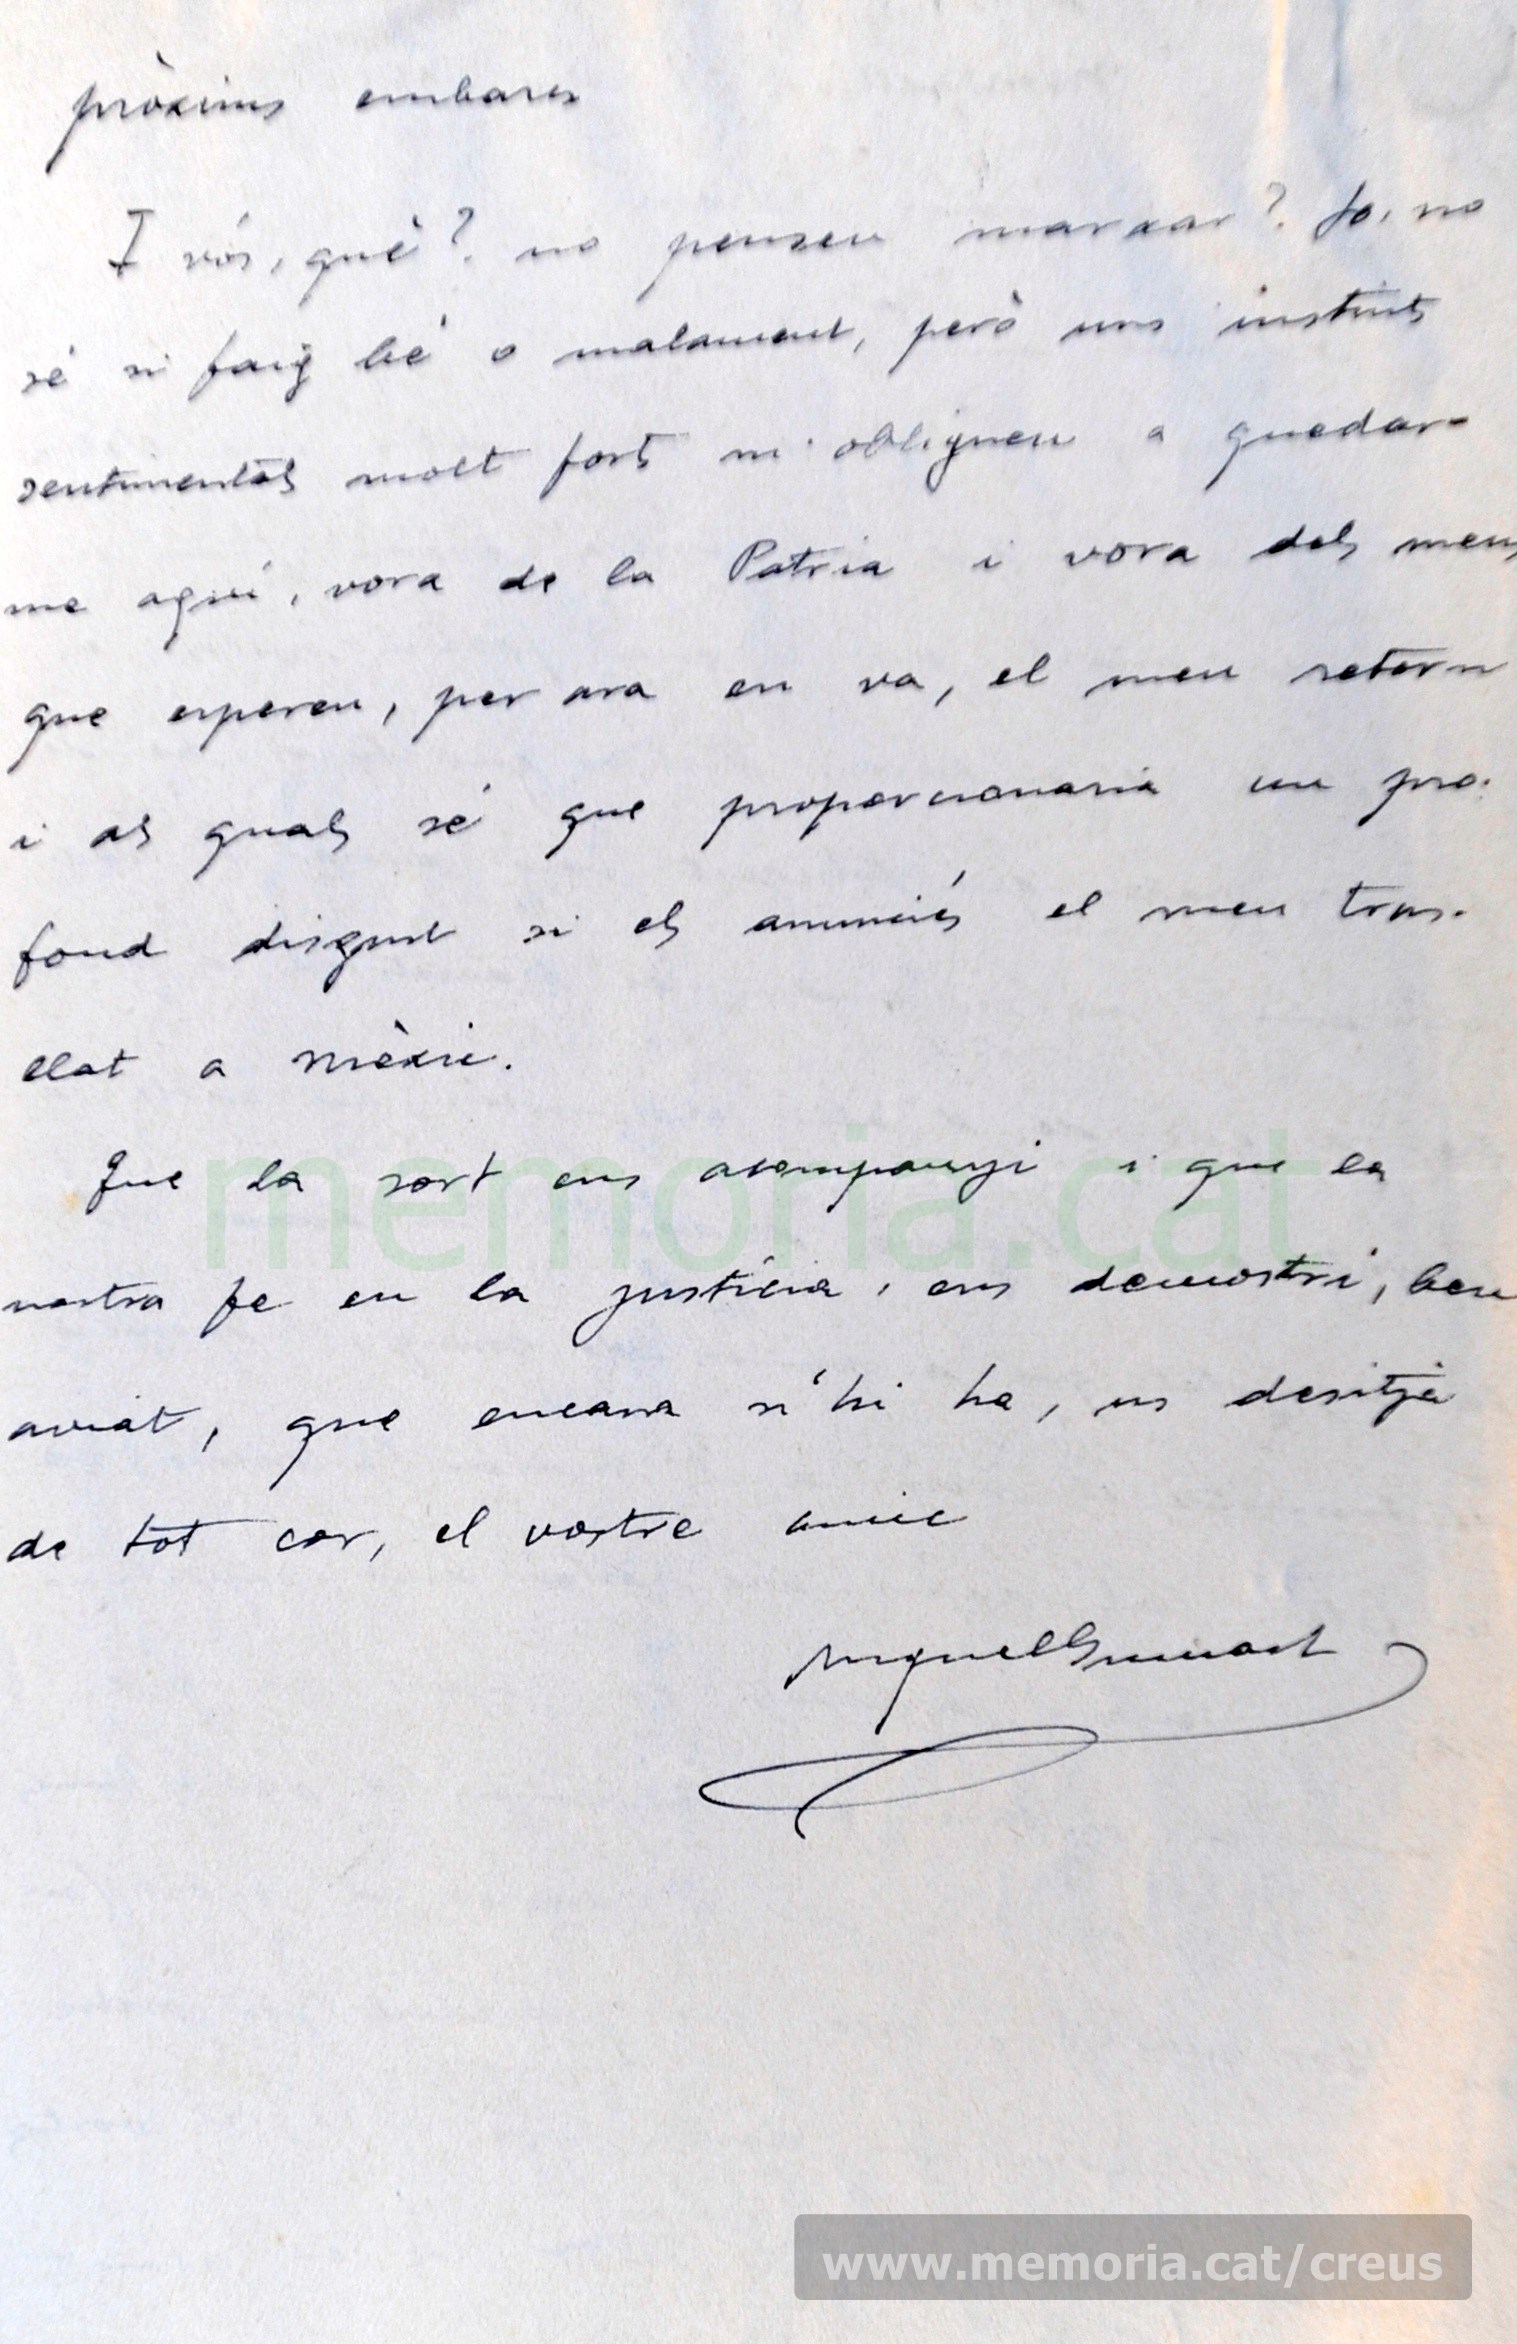 pròxims embarcs
I vós, què? no penseu marxar? Jo, no
sé si faig bé o malament, però uns instints
sentimentals molt forts m'obliguen a quedar-
me aquí, vora de la Patria i vora dels meus
que esperen, per ara en va, el meu retorn
i als quals sé que proporcionaria un pro-
fond disgust si els anunciés el meu tras-
llat a Mèxic.
Que la sort ens acompanyi i que la
nostra fe en la justícia, ens demostri, ben
aviat, que encara n'hi ha, us desitja
de tot cor, el vostre amic
Miquel
memoria.cat
www.memoria.cat/creus